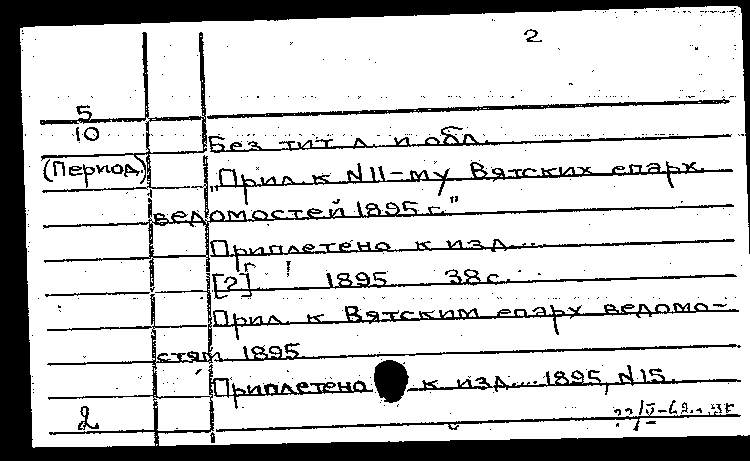 2
5
10
Без тит. л. и обл.
(Период.)
„Прил. к N11-му Вятских епарх.
ведомостей 1895 г."
Приплетено к изд....
[2] 1895 38 с.
Прил. к Вятским епарх ведомо-
стям 1895
Приплетено к изд.... 1895, N15.
2